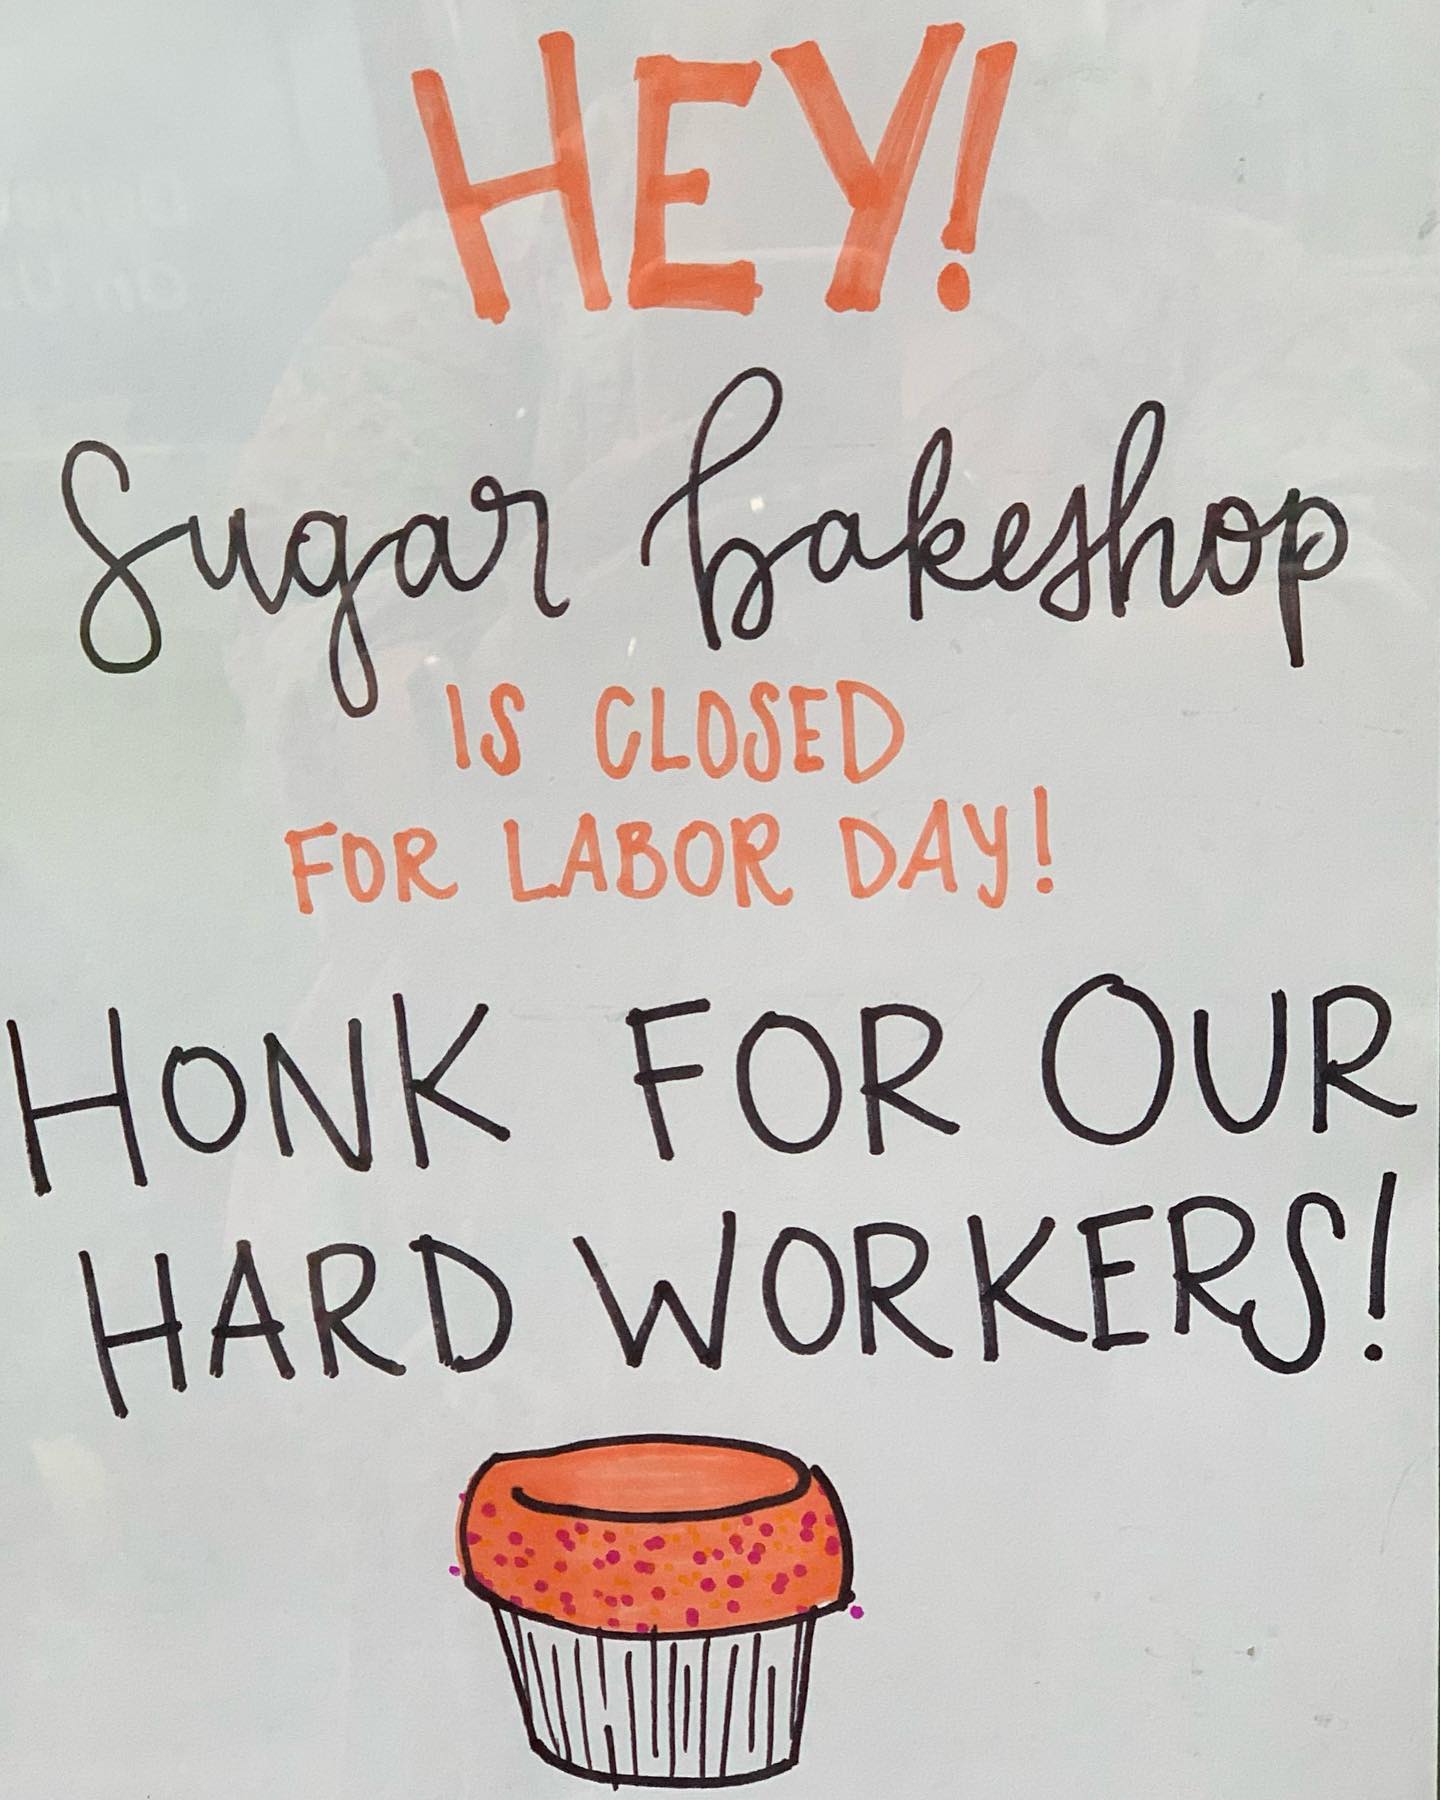 HEY!
Sugar bakeshop
IS CLOSED
FOR LABOR DAY!
HONK FOR OUR
HARD WORKERS!